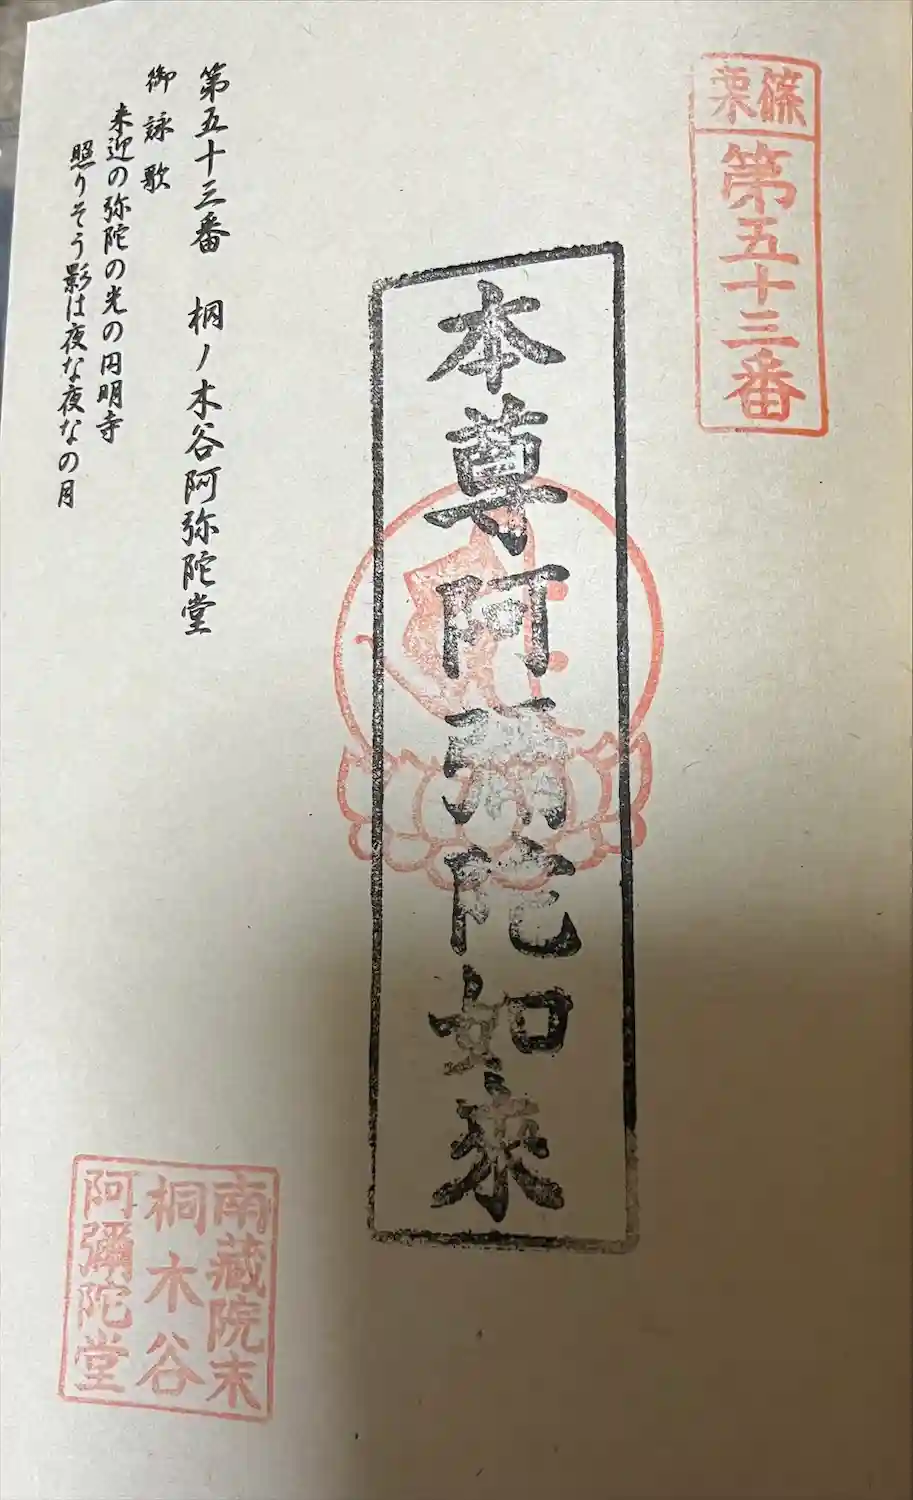 篠栗
第五十三番
本尊阿彌陀如来
第五十三番 桐ノ木谷阿弥陀堂
御詠歌
来迎の弥陀の光の円明寺
照りそう影は夜な夜なの月
南藏院末
桐木谷
阿彌陀堂